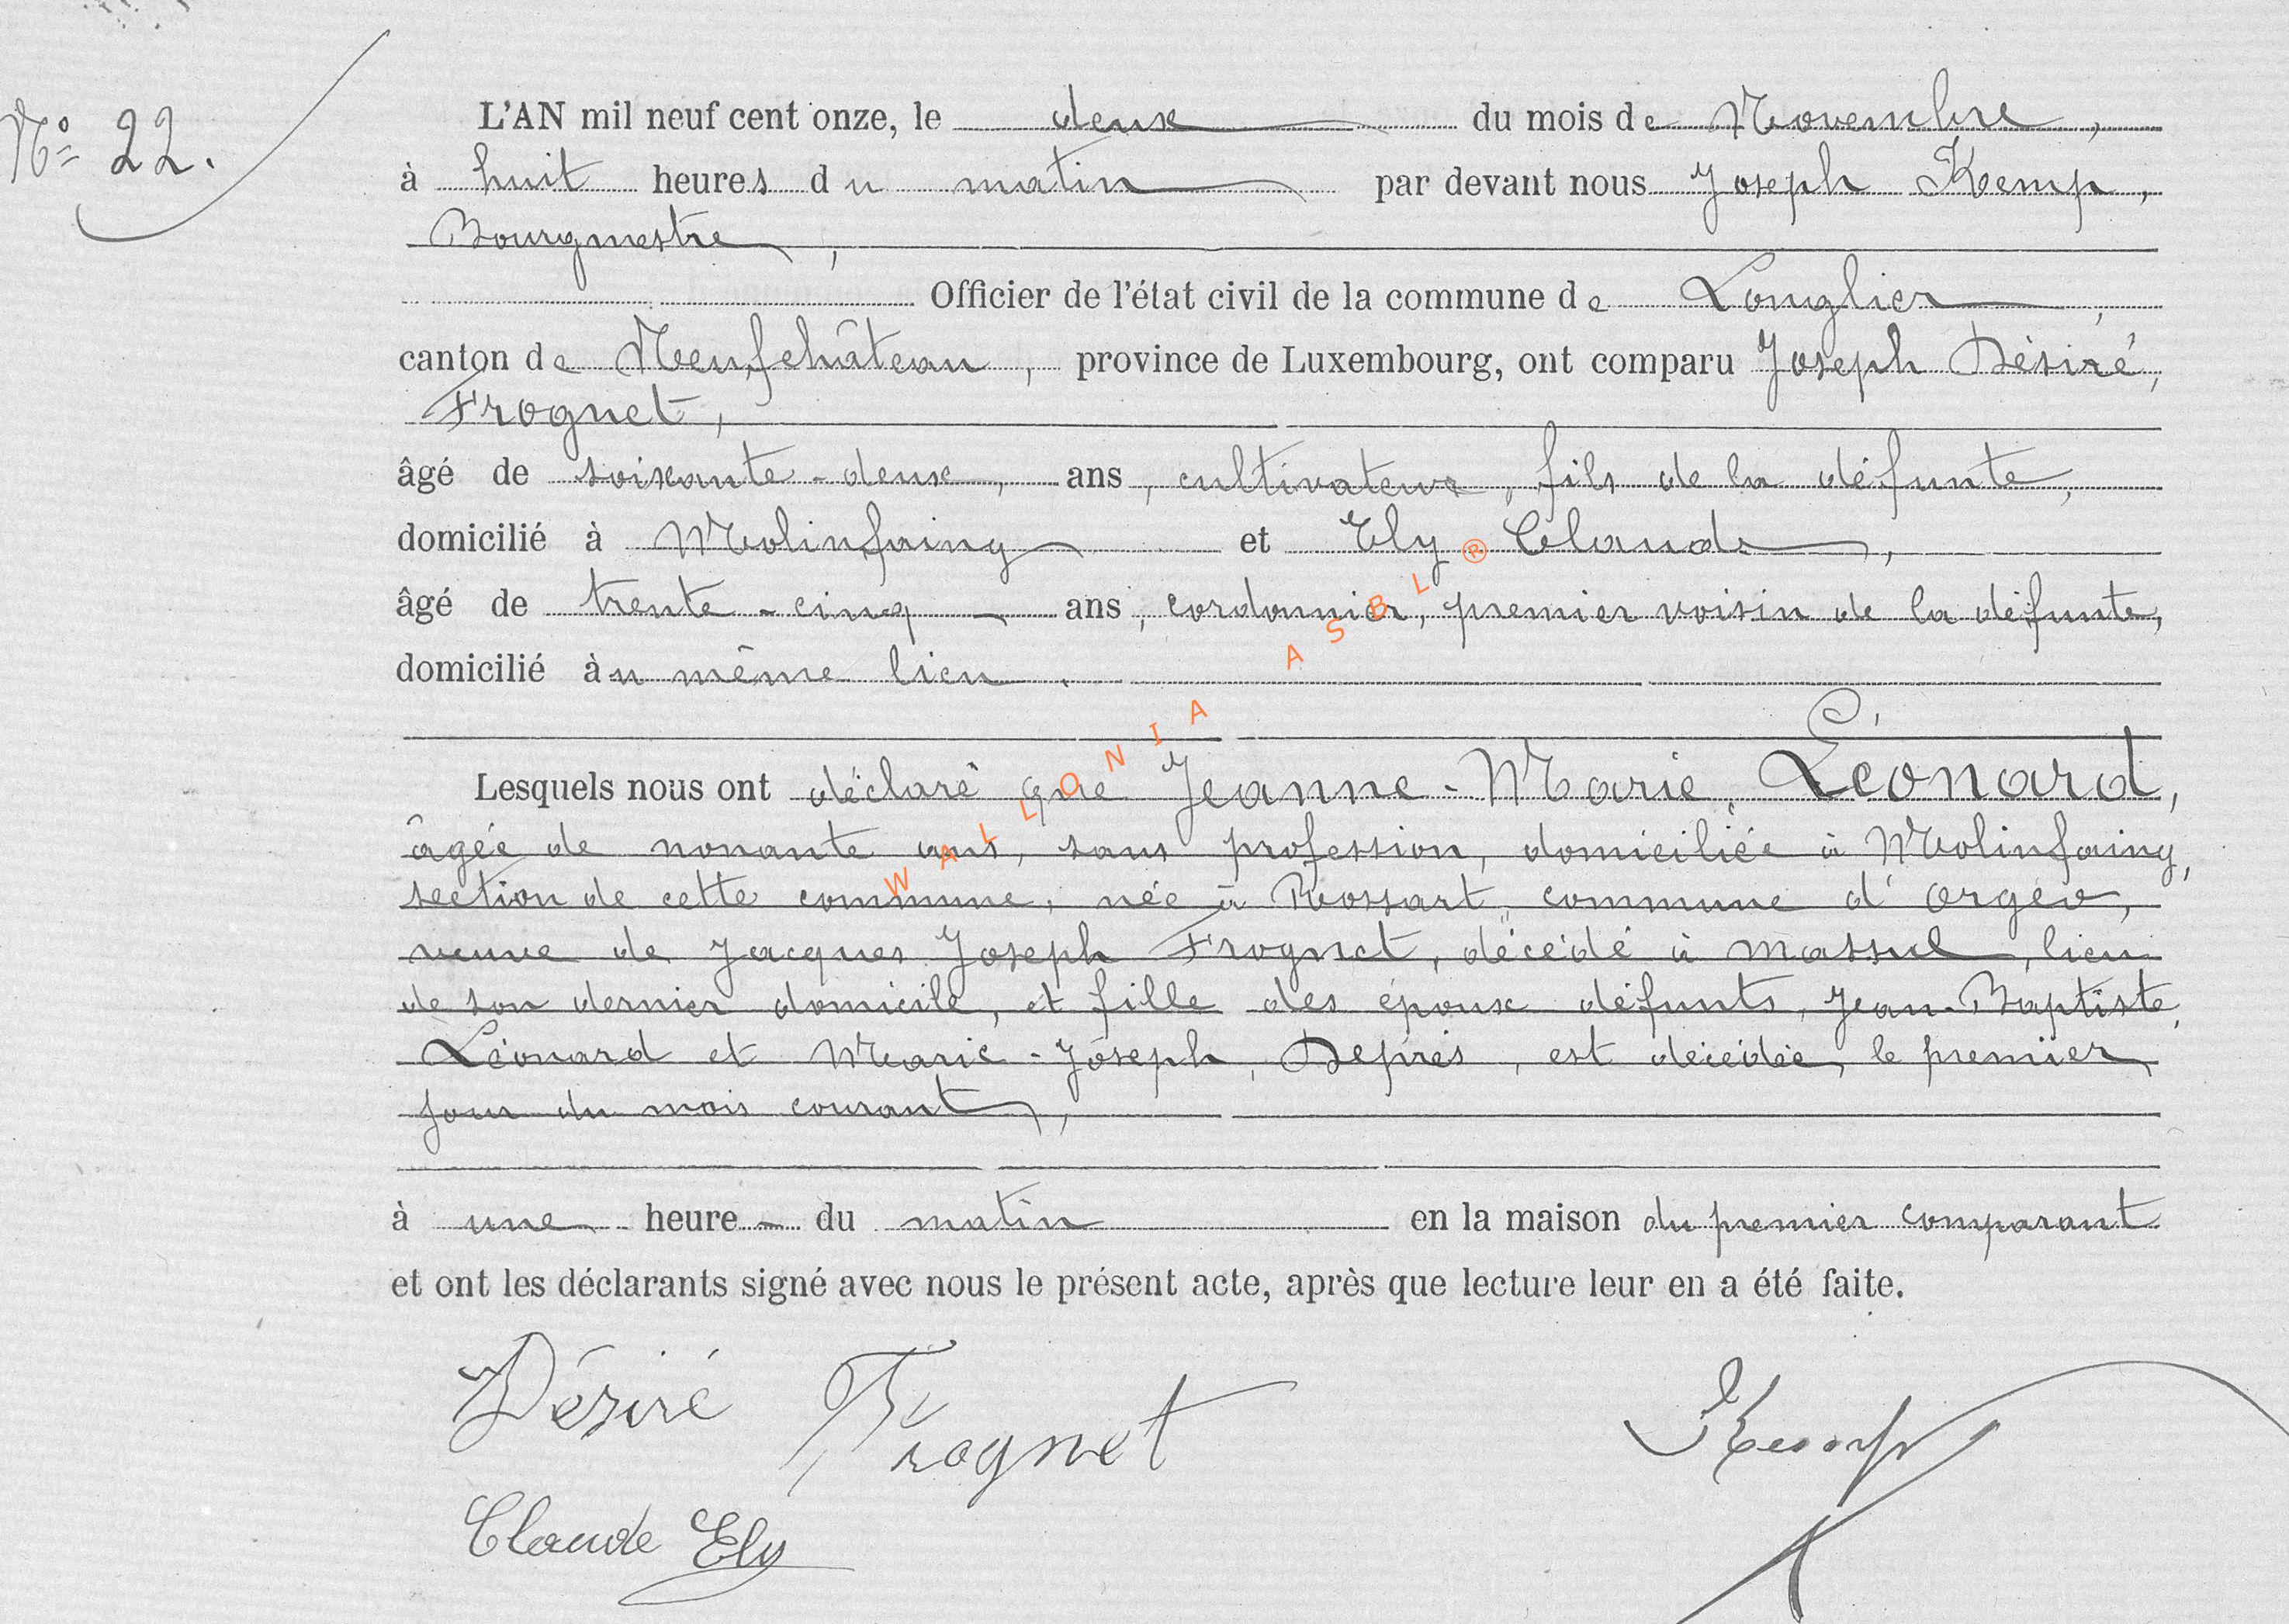 N° 22.
L'AN mil neuf cent onze, le deux du mois de Novembre,
à huit heures du matin par devant nous Joseph Kemp,
Bourgmestre,
Officier de l'état civil de la commune de Longlier,
canton de Neufchâteau, province de Luxembourg, ont comparu Joseph Désiré,
Frognet,
âgé de soixante-deux, ans, cultivateur, fils de la défunte,
domicilié à Molinfaing et Ely Claude,
âgé de trente-cinq ans, cordonnier, premier voisin de la défunte,
domicilié au même lieu.
Lesquels nous ont déclaré que Jeanne-Marie, Léonard,
âgée de nonante ans, sans profession, domiciliée à Molinfaing,
section de cette commune, née à Rossart, commune d'Orgeo,
veuve de Jacques Joseph Frognet, décédé à Massul, lieu
de son dernier domicile, et fille des époux défunts, Jean-Baptiste,
Léonard et Marie-Joseph, Deprés, est décédée, le premier
jour du mois courant,
à une heure du matin en la maison du premier comparant
et ont les déclarants signé avec nous le présent acte, après que lecture leur en a été faite.
Désiré Frognet Kemp
Claude Ely
WALLONIA ASBL ®